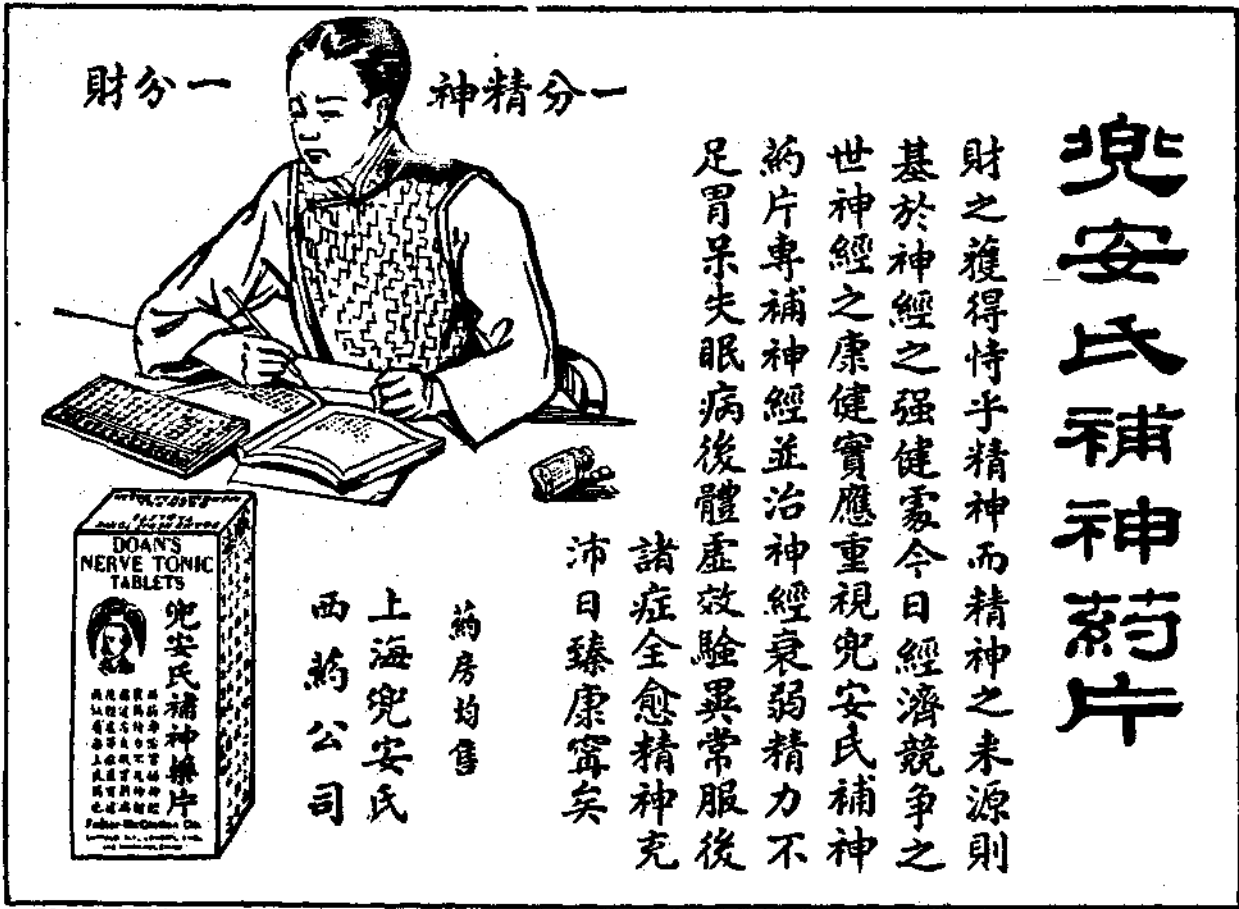 兜安氏補神药片
一分精神
一分財
財之獲得恃乎精神而精神之来源則
基於神經之强健处今日經濟競争之
世神經之康健實應重視兜安氏補神
药片專補神經並治神經衰弱精力不
足胃呆失眠病後體虛效驗異常服後
諸症全愈精神充
沛日臻康寧矣
药房均售
上海兜安氏
西药公司
DOAN'S
NERVE TONIC
TABLETS
兜安氏補神藥片
Foster-McClellan Co.